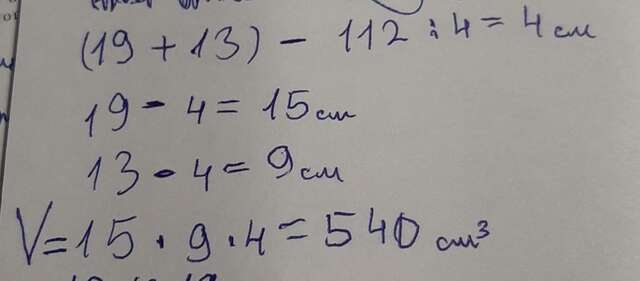 (19 + 13) - 112 : 4 = 4 см
19 - 4 = 15 см
13 - 4 = 9 см
V = 15 · 9 · 4 = 540 см³